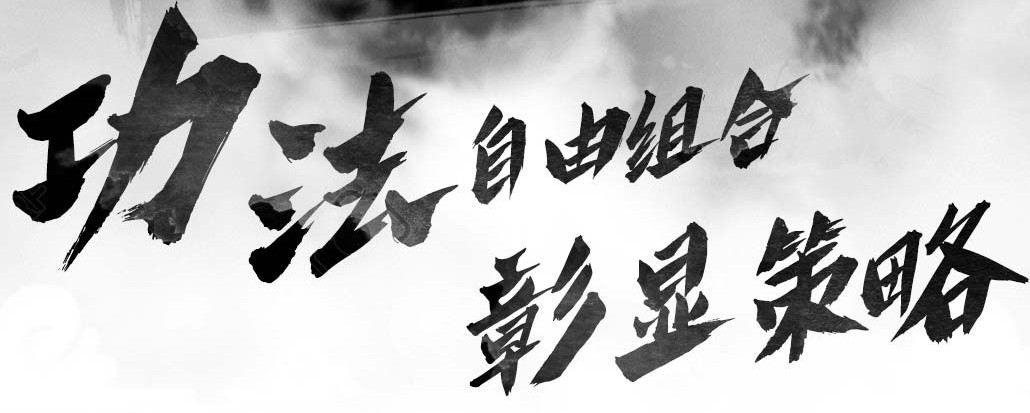 功法自由组合
彰显策略